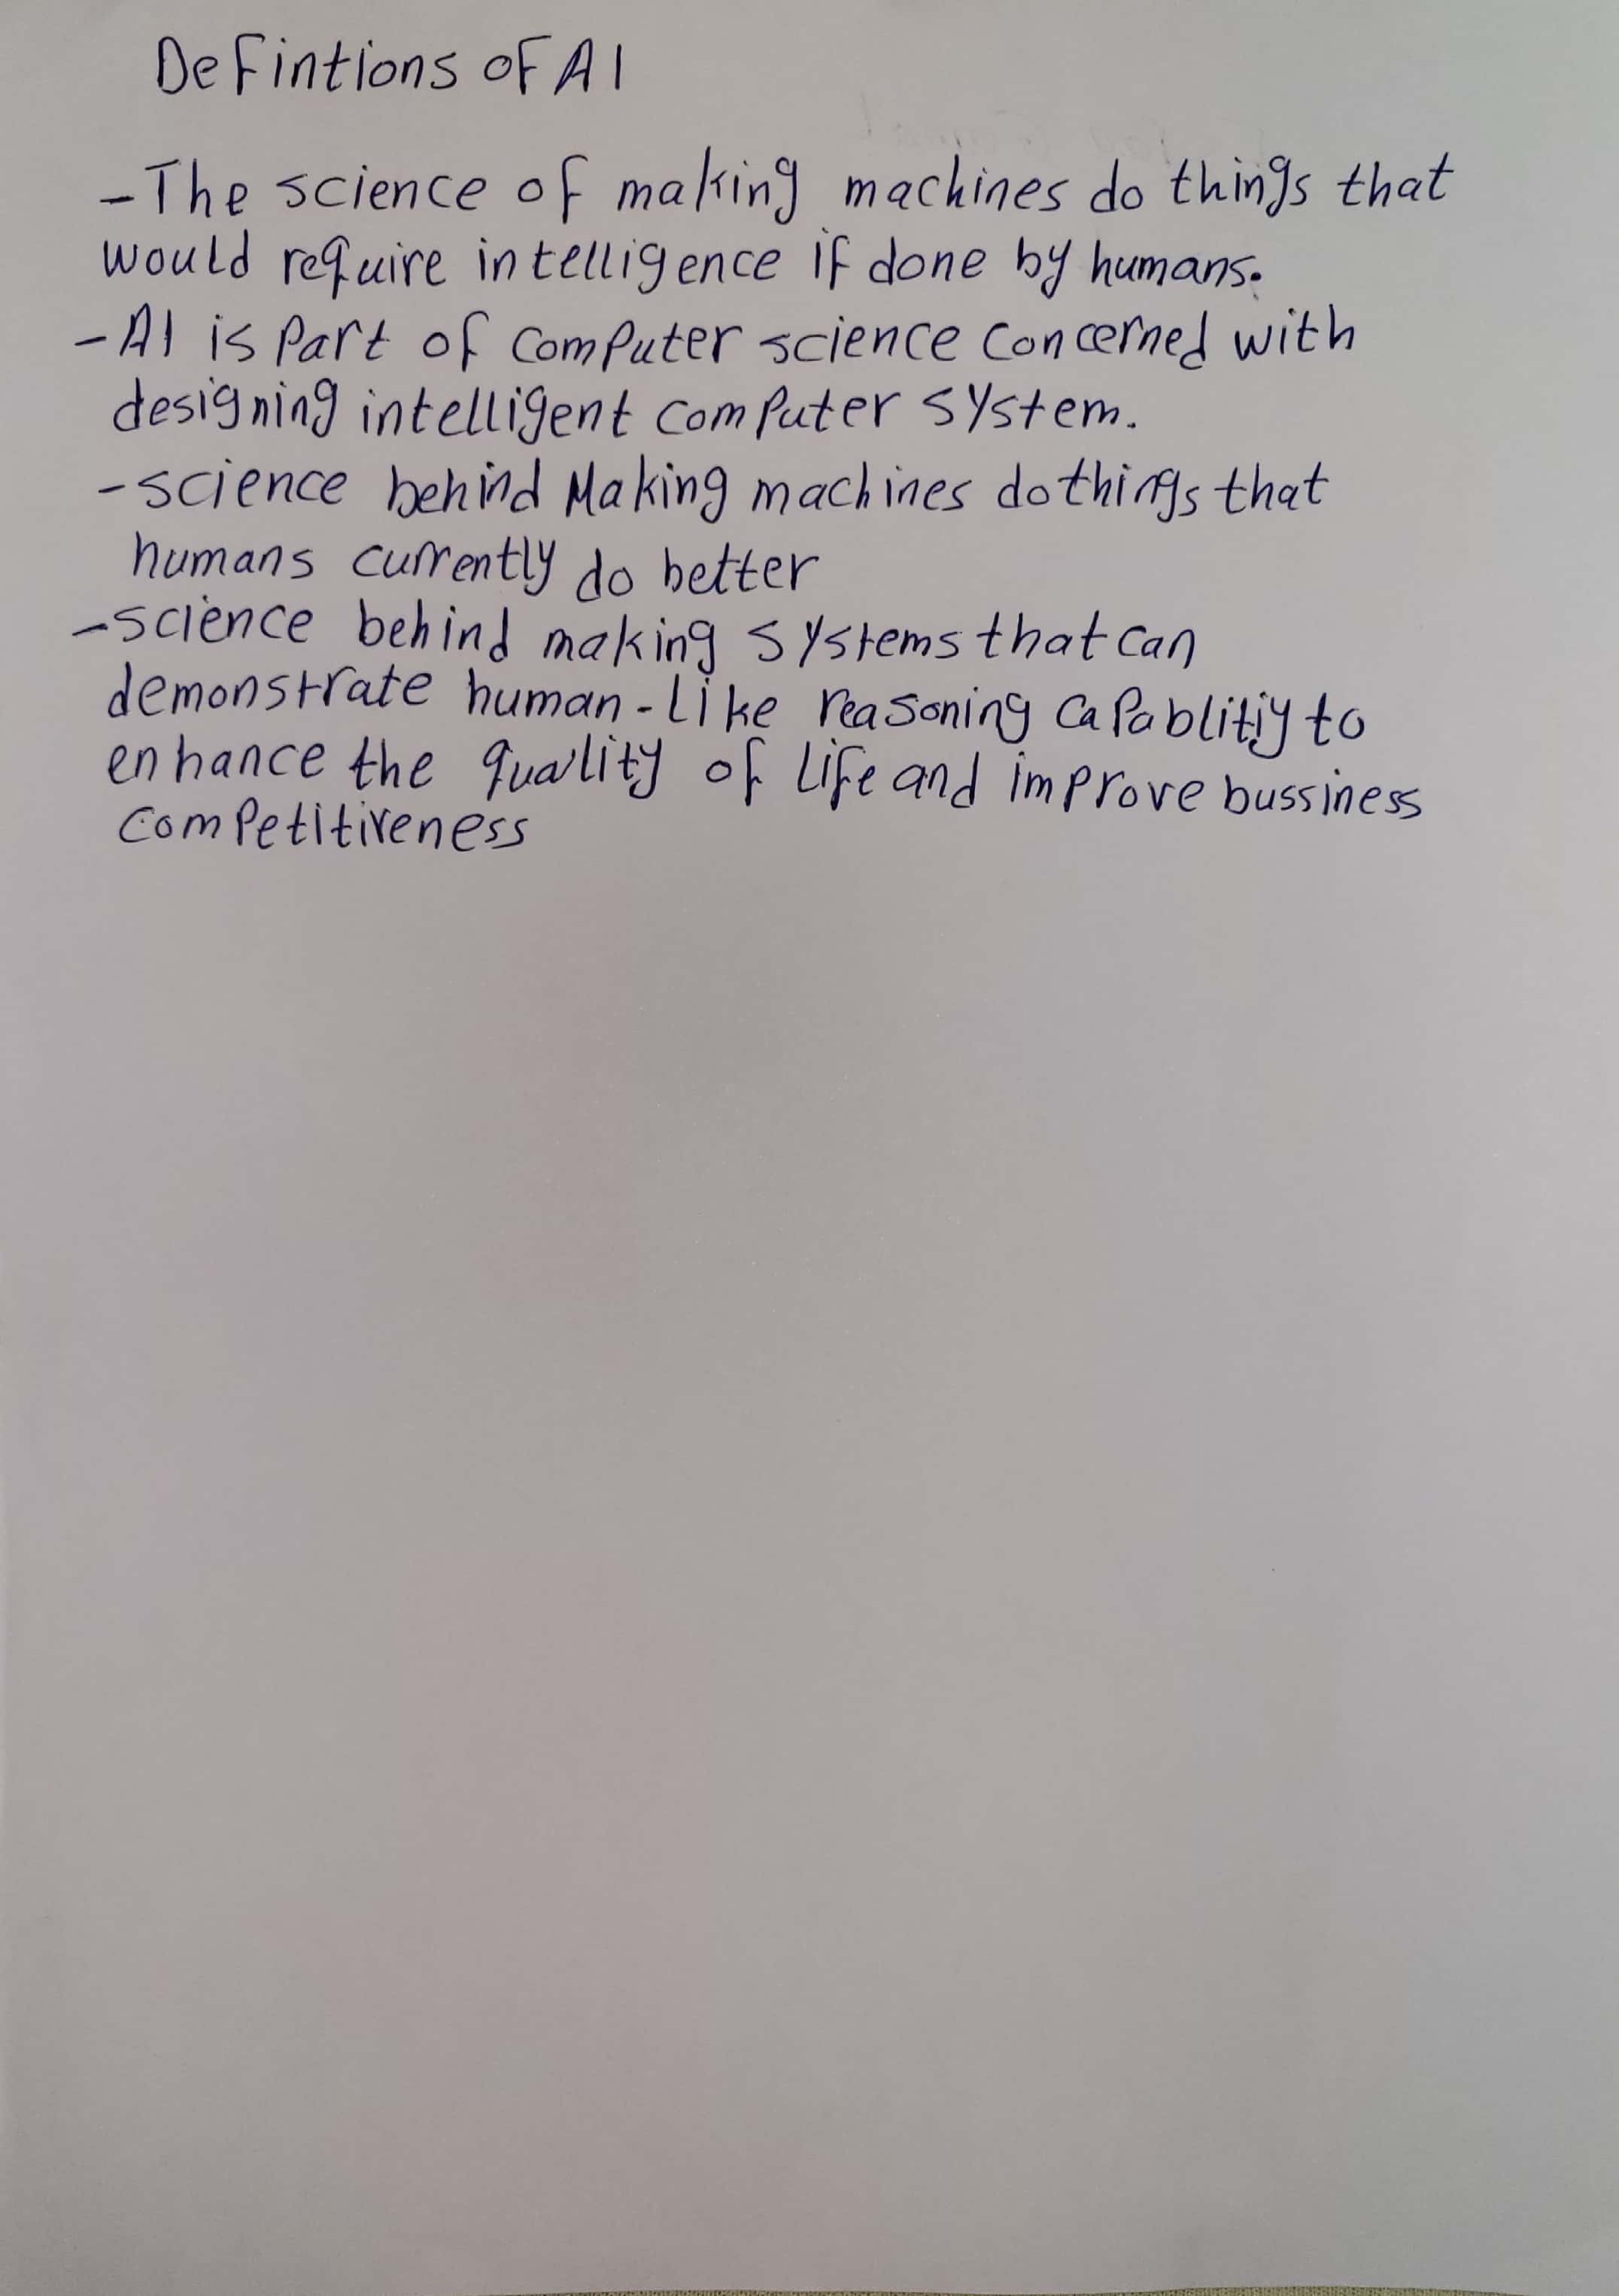 Defintions of AI
- The science of making machines do things that
would require intelligence if done by humans.
- AI is part of computer science concerned with
designing intelligent computer system.
- science behind Making machines do things that
humans currently do better
- science behind making systems that can
demonstrate human-like reasoning capablitiy to
enhance the quality of life and improve bussiness
competitiveness